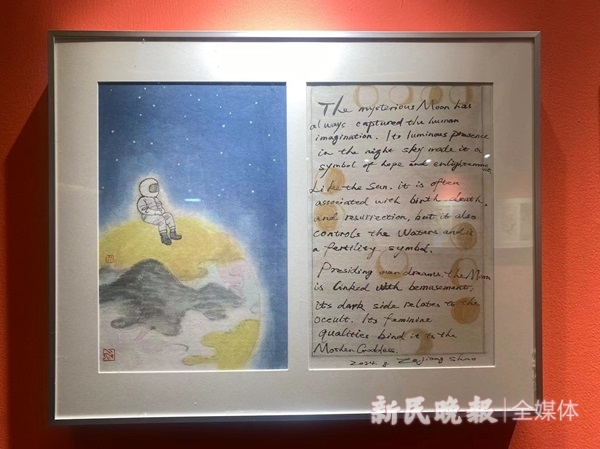 The mysterious Moon has
always captured the human
imagination. Its luminous presence
in the night sky made it a
symbol of hope and enlightenment
Like the Sun, it is often
associated with birth, death,
and resurrection, but it also
controls the Waters and is
a fertility symbol.
Presiding over dreams, the Moon
is linked with bemusement,
its dark side relates to the
occult. Its feminine
qualities bind it to the
Mother Goddess.
2024. 8.
新民晚报|全媒体